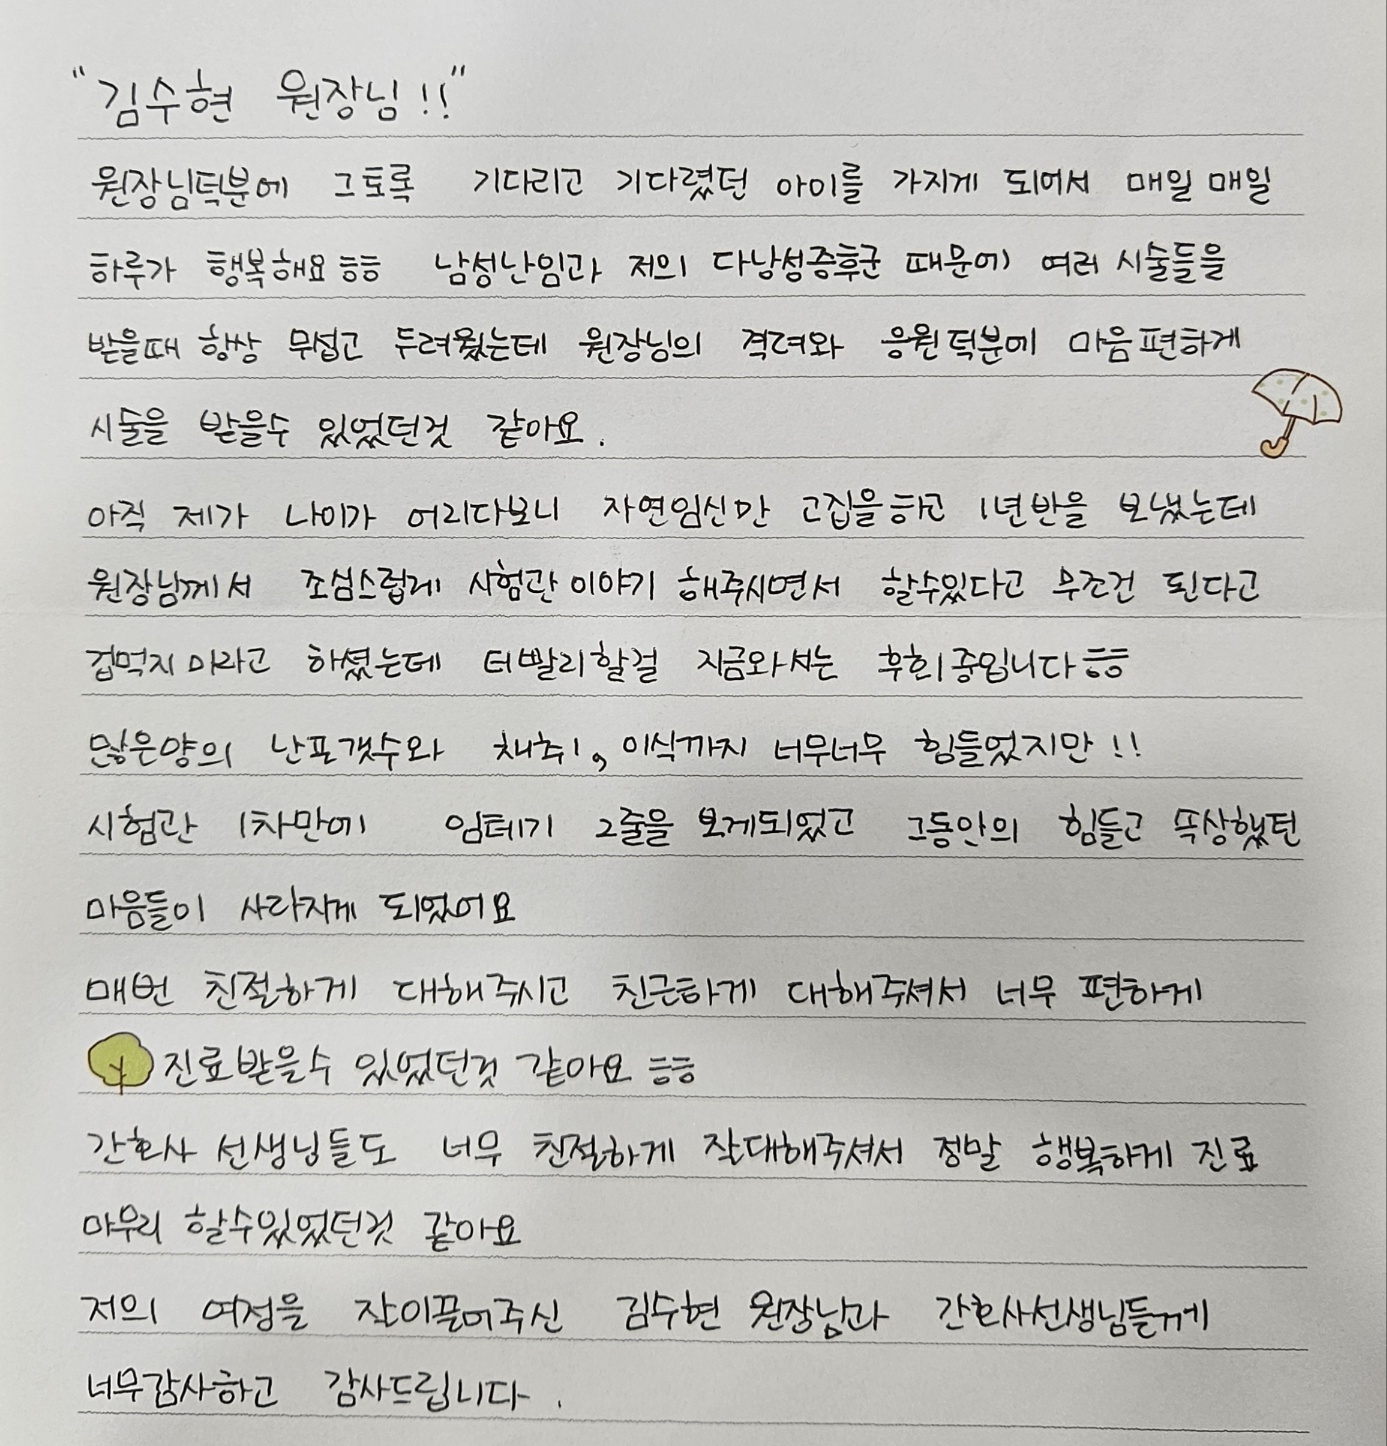 "김수현 원장님!!"
원장님덕분에 그토록 기다리고 기다렸던 아이를 가지게 되어서 매일매일
하루가 행복해요ㅎㅎ 남성난임과 저의 다낭성증후군 때문에 여러 시술들을
받을때 항상 무섭고 두려웠는데 원장님의 격려와 응원덕분에 마음편하게
시술을 받을수 있었던것 같아요.
아직 제가 나이가 어리다보니 자연임신만 고집을하고 1년반을 보냈는데
원장님께서 조심스럽게 시험관이야기 해주시면서 할수있다고 무조건 된다고
겁먹지마라고 하셨는데 더빨리할걸 지금와서는 후회중입니다ㅎㅎ
많은양의 난포갯수와 채취, 이식까지 너무너무 힘들었지만!!
시험관 1차만에 임테기 2줄을 보게되었고 그동안의 힘들고 속상했던
마음들이 사라지게 되었어요
매번 친절하게 대해주시고 친근하게 대해주셔서 너무 편하게
진료받을수 있었던것 같아요ㅎㅎ
간호사 선생님들도 너무 친절하게 잘대해주셔서 정말 행복하게 진료
마무리 할수있었던것 같아요
저의 여정을 잘이끌어주신 김수현 원장님과 간호사선생님들께
너무감사하고 감사드립니다.